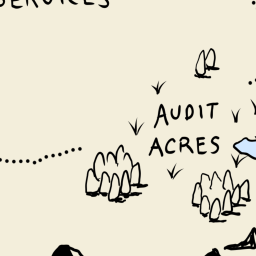 SERVICES
AUDIT
ACRES